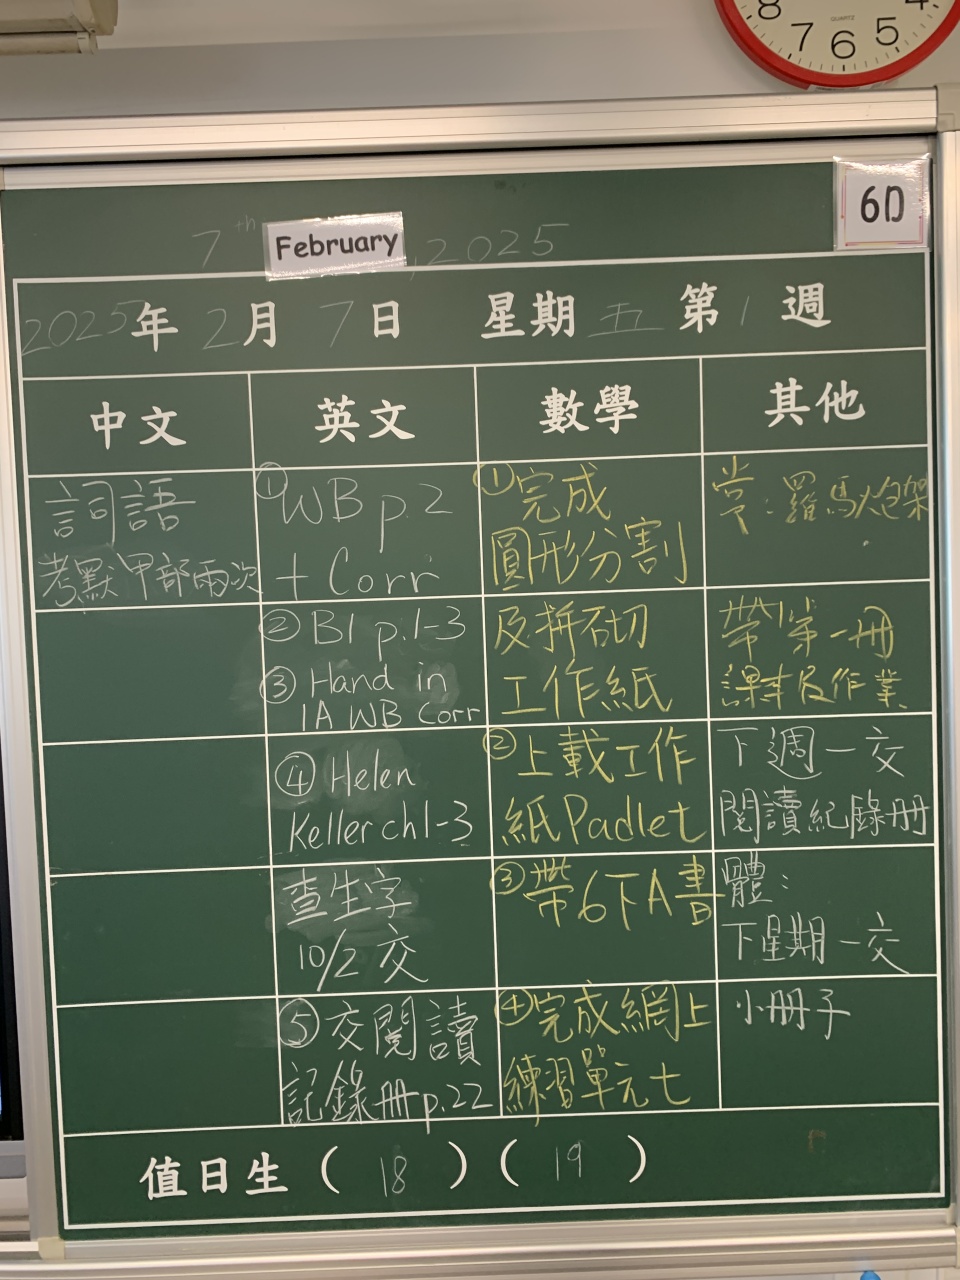 8 7 6 5 4
QUARTZ
6D
7th February, 2025
2025年2月7日 星期五 第1週
中文 英文 數學 其他
詞語
考默甲部兩次
① WB p.2
+ Corr
② B1 p.1-3
③ Hand in
1A WB Corr
④ Helen
Keller ch1-3
查生字
10/2 交
⑤ 交閱讀
記錄冊 p.22
① 完成
圓形分割
及拆砌
工作紙
② 上載工作
紙 Padlet
③ 帶6下A書
④ 完成網上
練習單元七
常:羅馬炮架
帶第一冊
課本及作業
下週一交
閱讀紀錄冊
體:
下星期一交
小冊子
值日生 ( 18 ) ( 19 )